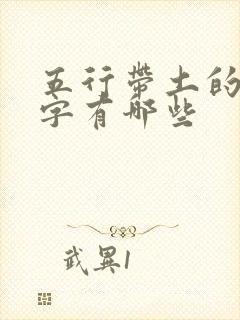 五行带土的
字有哪些
武異1